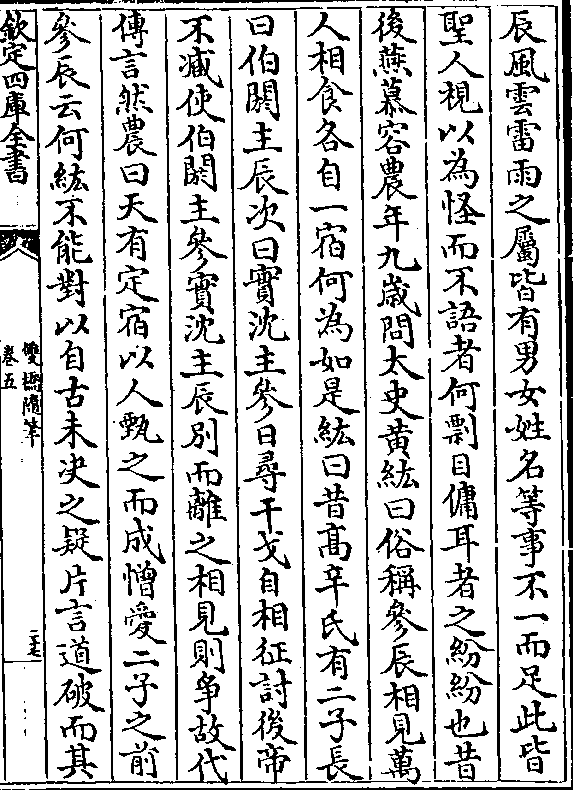 辰風雲雷雨之屬皆有男女姓名等事不一而足此皆
聖人視以為怪而不語者何剽目傭耳者之紛紛也昔
後燕慕容農年九歲問太史黄紘曰俗稱參辰相見萬
人相食各自一宿何為如是紘曰昔髙辛氏有二子長
曰伯閼主辰次曰實沈主參日尋干戈自相征討後帝
不臧使伯閼主參實沈主辰別而離之相見則爭故代
傳言然農曰天有定宿以人甄之而成憎愛二子之前
參辰云何紘不能對以自古未决之疑片言道破而其
欽定四庫全書
雙橋隨筆
卷五